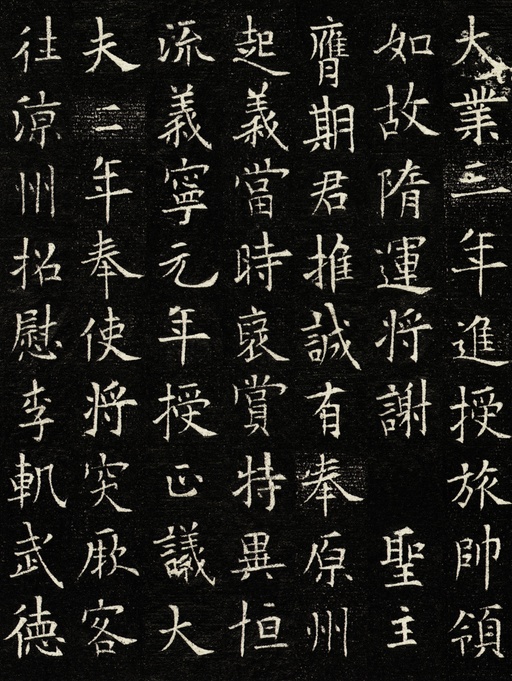 大業三年進授旅帥領
如故隋運将謝　聖主
膺期君推誠有奉原州
起義當時裦賞特異恒
流義寧元年授正議大
夫二年奉使将突厥客
往涼州招慰李軌武德